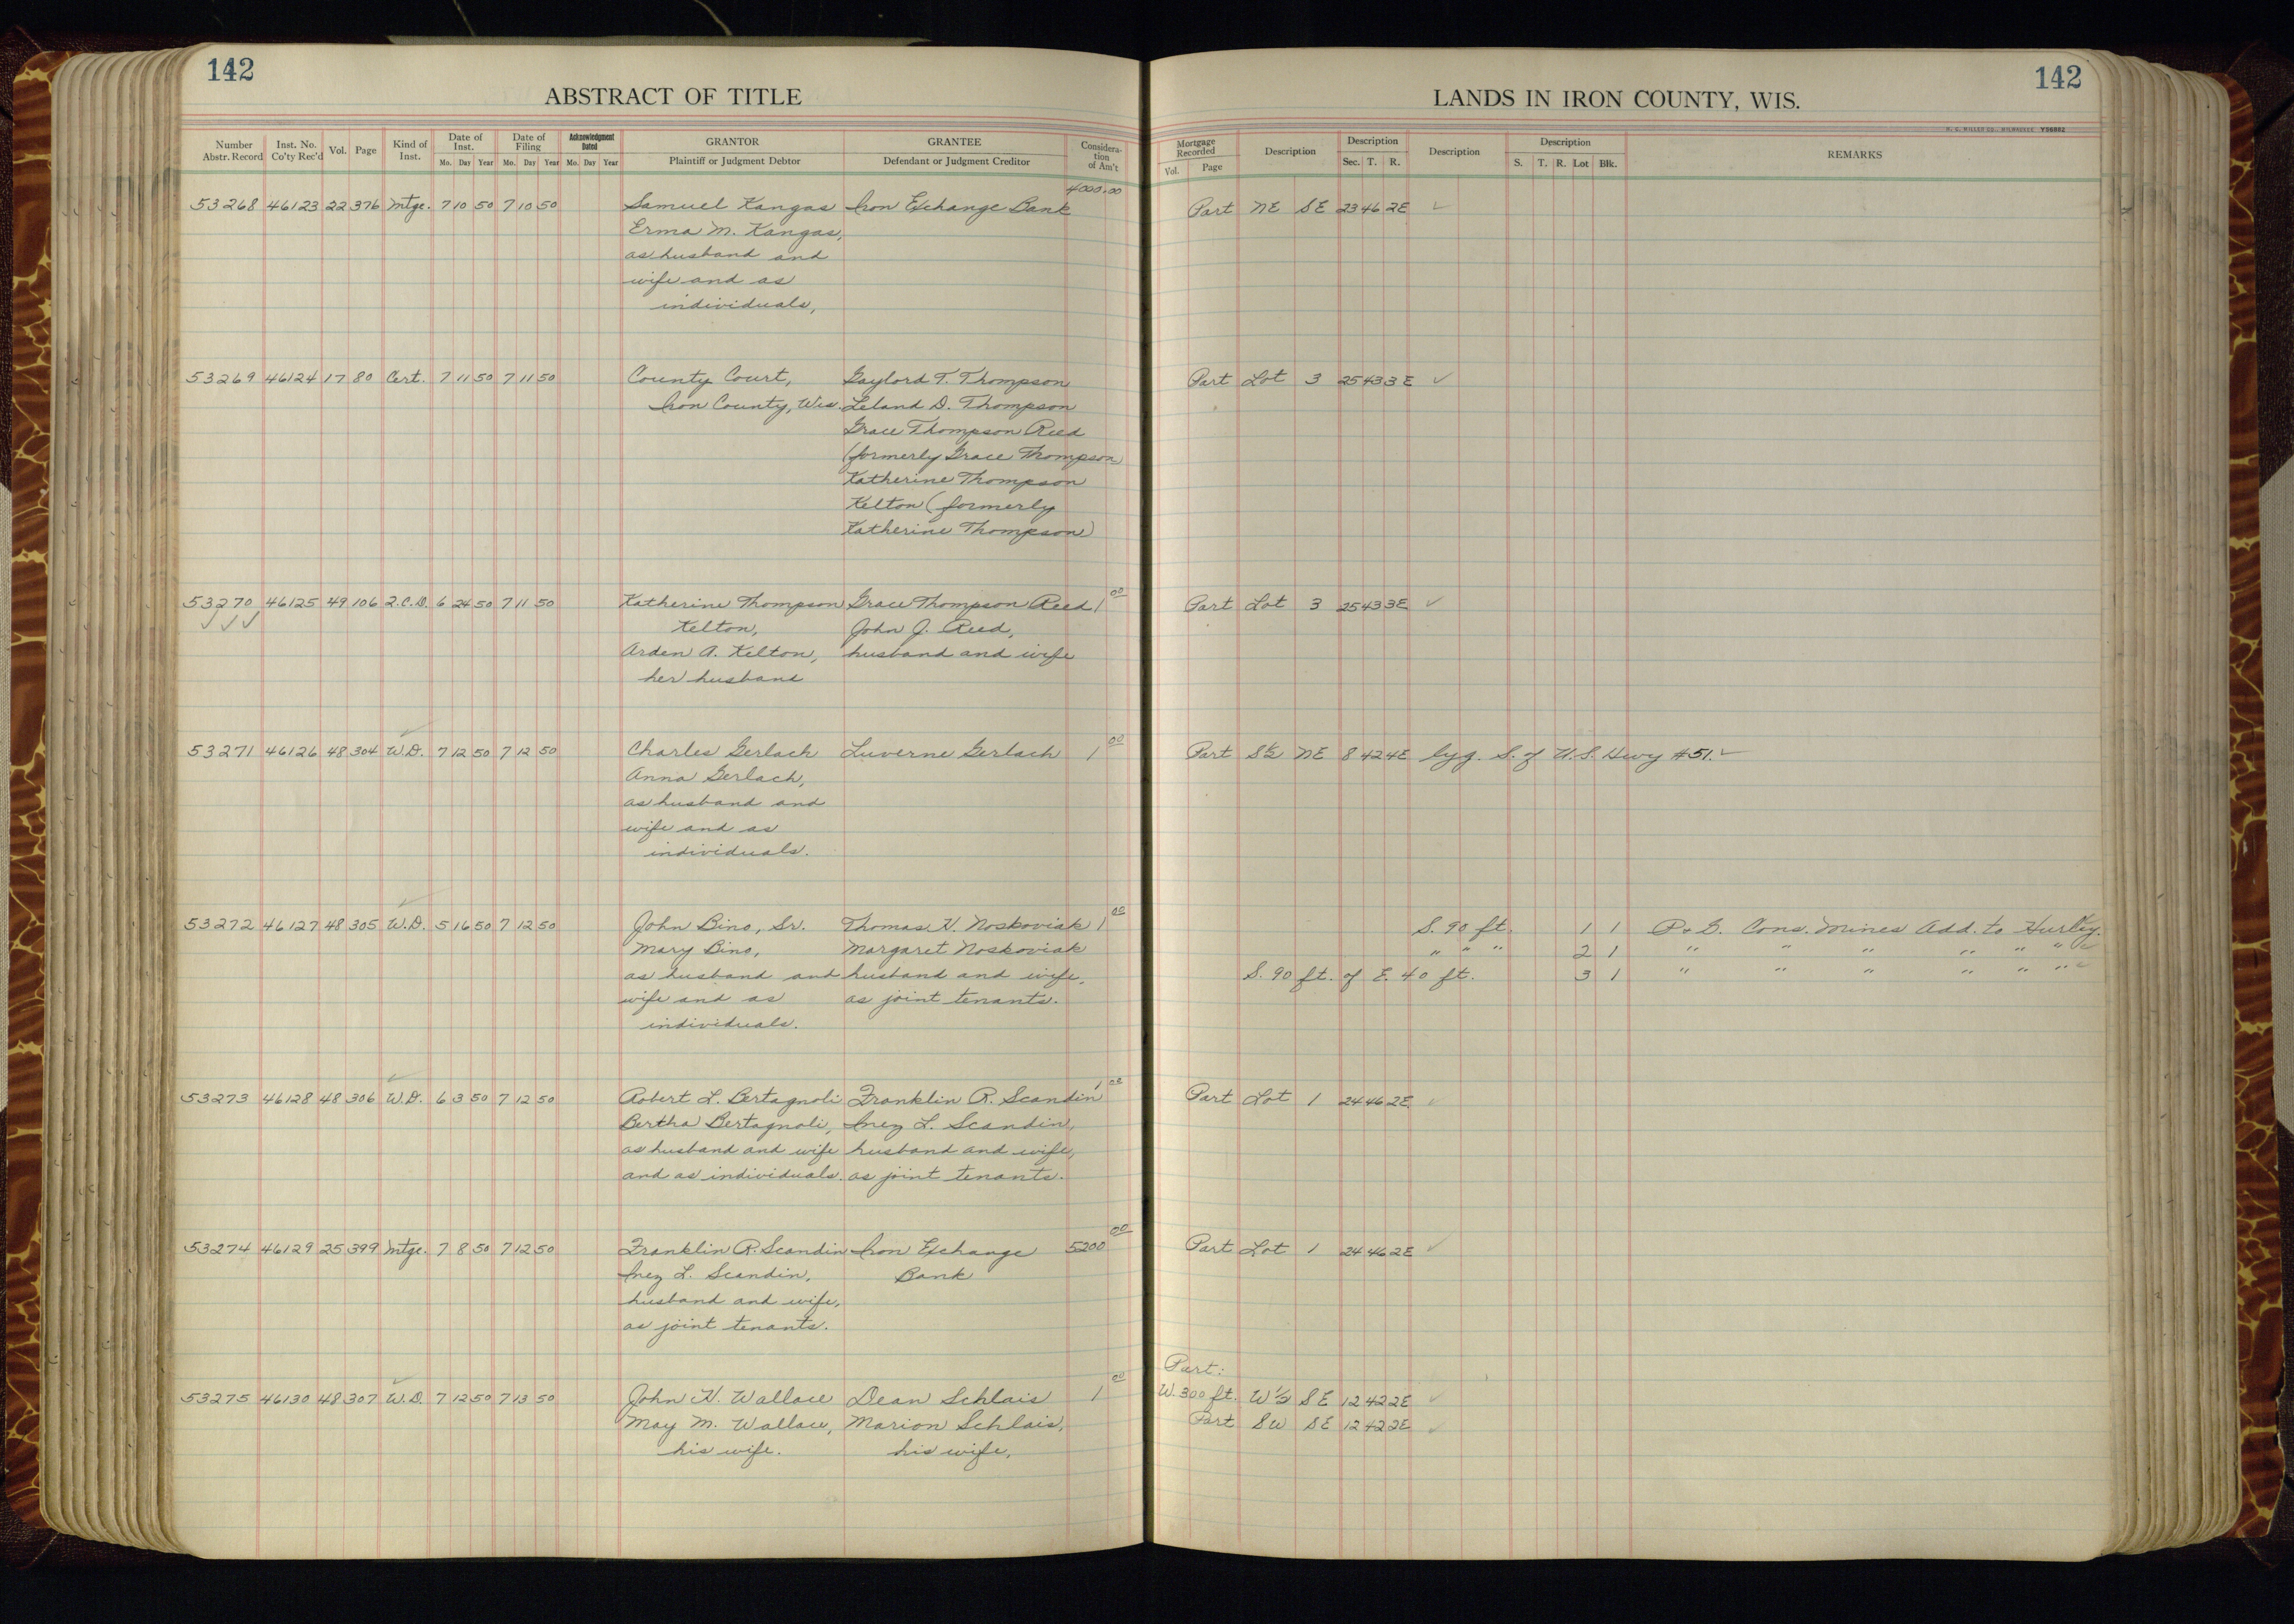 142
142
ABSTRACT OF TITLE
LANDS IN IRON COUNTY, WIS.
Number Abstr. Record
Inst. No. Co'ty Rec'd
Vol.
Page
Kind of Inst.
Date of Inst. Mo. Day Year
Date of Filing Mo. Day Year
Acknowledgment Dated Mo. Day Year
GRANTOR
Plaintiff or Judgment Debtor
GRANTEE
Defendant or Judgment Creditor
Considera- tion of Am't
Mortgage Recorded Vol. Page
Description
Description Sec. T. R.
Description
Description S. T. R. Lot Blk.
REMARKS
H. C. MILLER CO., MILWAUKEE Y56982
4000.00
53268 46123 22 376 Mtge. 7 10 50 7 10 50 Samuel Kangas Iron Exchange Bank Part NE SE 23 46 2E ✓
Erma M. Kangas,
as husband and
wife and as
individuals,
53269 46124 17 80 Cert. 7 11 50 7 11 50 County Court, Gaylord T. Thompson Part Lot 3 25 43 3E ✓
Iron County, Wis. Leland D. Thompson
Grace Thompson Reed
(formerly Grace Thompson)
Katherine Thompson
Kelton (formerly
Katherine Thompson)
53270 46125 49 106 Q.C.D. 6 24 50 7 11 50 Katherine Thompson Grace Thompson Reed 1 00 Part Lot 3 25 43 3E ✓
✓ ✓ ✓ Kelton, John J. Reed,
Arden A. Kelton, husband and wife
her husband
53271 46126 48 304 W.D. 7 12 50 7 12 50 Charles Gerlach Luverne Gerlach 1 00 Part S½ NE 8 42 4E lyg. S. of U.S. Hwy #51. ✓
Anna Gerlach,
as husband and
wife and as
individuals.
53272 46127 48 305 W.D. 5 16 50 7 12 50 John Bino, Sr. Thomas H. Noskoviak 1 00 S. 90 ft. 1 1 P. & G. Cons. Mines Add. to Hurley.
Mary Bino, Margaret Noskoviak " " " 2 1 " " " " " " ✓
as husband and husband and wife, S. 90 ft. of E. 40 ft. 3 1 " " " " " " ✓
wife and as as joint tenants.
individuals.
53273 46128 48 306 W.D. 6 3 50 7 12 50 Robert L. Bertagnoli Franklin R. Scandin 1 00 Part Lot 1 24 46 2E ✓
Bertha Bertagnoli, Inez L. Scandin,
as husband and wife husband and wife,
and as individuals. as joint tenants.
53274 46129 25 399 Mtge. 7 8 50 7 12 50 Franklin R. Scandin Iron Exchange 5200 00 Part Lot 1 24 46 2E ✓
Inez L. Scandin, Bank
husband and wife,
as joint tenants.
Part:
53275 46130 48 307 W.D. 7 12 50 7 13 50 John H. Wallace Dean Schlais 1 00 W. 300 ft. W½ SE 12 42 2E ✓
May M. Wallace, Marion Schlais, Part SW SE 12 42 2E ✓
his wife. his wife,